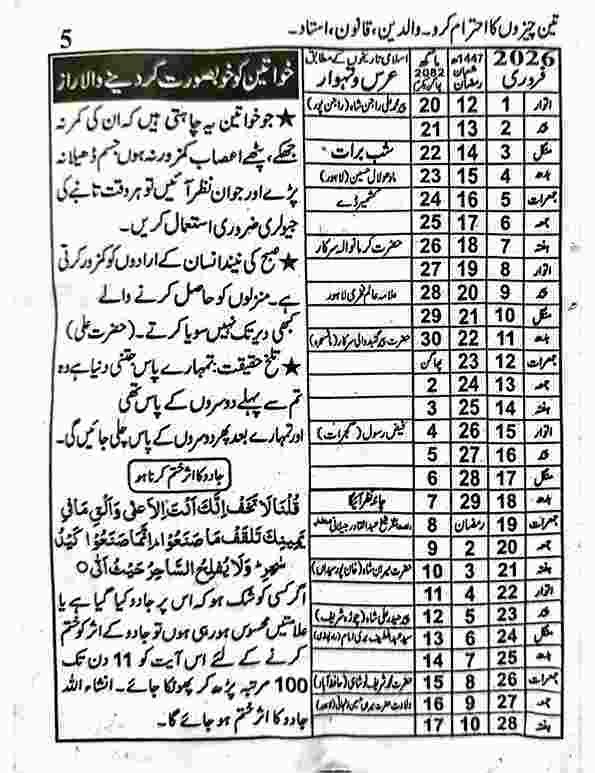 تین چیزوں کا احترام کرو۔ والدین، قانون، استاد۔
5
2026 فروری
1447ھ شعبان رمضان
2082
اسلامی تاریخوں کے مطابق عرس و تہوار
اتوار 1 12 20 (راجن پور)
پیر 2 13 21
منگل 3 14 22 شب برات
بدھ 4 15 23 مادھو لال حسین (لاہور)
جمعرات 5 16 24 کشمیر ڈے
جمعہ 6 17 25
ہفتہ 7 18 26 حضرت کرمانوالہ سرکار
اتوار 8 19 27
پیر 9 20 28 لاہور
منگل 10 21 29
بدھ 11 22 30 حضرت پیر سرکار
جمعرات 12 23 پھاگن
جمعہ 13 24 2
ہفتہ 14 25 3
اتوار 15 26 4 فیض رسول (گجرات)
پیر 16 27 5
منگل 17 28 6
بدھ 18 29 7 چاند نظر آئیگا
جمعرات 19 رمضان 8 شیخ عبدالقادر جیلانی
جمعہ 20 2 9
ہفتہ 21 3 10 حضرت میراں شاہ
اتوار 22 4 11
پیر 23 5 12 پیر حیدر علی شاہ
منگل 24 6 13
بدھ 25 7 14
جمعرات 26 8 15 حضرت محمد شریف
جمعہ 27 9 16 ولادت حضرت
ہفتہ 28 10 17
خواتین کو خوبصورت کر دینے والا راز
★ جو خواتین یہ چاہتی ہیں کہ ان کی کمر نہ
جھکے، پٹھے اعصاب کمزور نہ ہوں جسم ڈھیلا نہ
پڑے اور جوان نظر آئیں تو ہر وقت تانبے کی
جیولری ضروری استعمال کریں۔
★ صبح کی نیند انسان کے ارادوں کو کمزور کرتی
ہے۔ منزلوں کو حاصل کرنے والے
کبھی دیر تک نہیں سویا کرتے۔ (حضرت علی)
★ تلخ حقیقت: تمہارے پاس جتنی دنیا ہے وہ
تم سے پہلے دوسروں کے پاس تھی
اور تمہارے بعد پھر دوسروں کے پاس چلی جائیں گی۔
جادو کا اثر ختم کرنا ہو
قُلْنَا لَا تَخَفْ اِنَّكَ اَنْتَ الْاَعْلٰى وَاَلْقِ مَا فِيْ
يَمِيْنِكَ تَلْقَفْ مَا صَنَعُوْا اِنَّمَا صَنَعُوْا كَيْدُ
سٰحِرٍ وَلَا يُفْلِحُ السَّاحِرُ حَيْثُ اَتٰى
اگر کسی کو شک ہو کہ اس پر جادو کیا گیا ہے یا
علامتیں محسوس ہو رہی ہوں تو جادو کے اثر کو ختم
کرنے کے لئے اس آیت کو 11 دن تک
100 مرتبہ پڑھ کر پھونکا جائے۔ انشاء اللہ
جادو کا اثر ختم ہو جائے گا۔